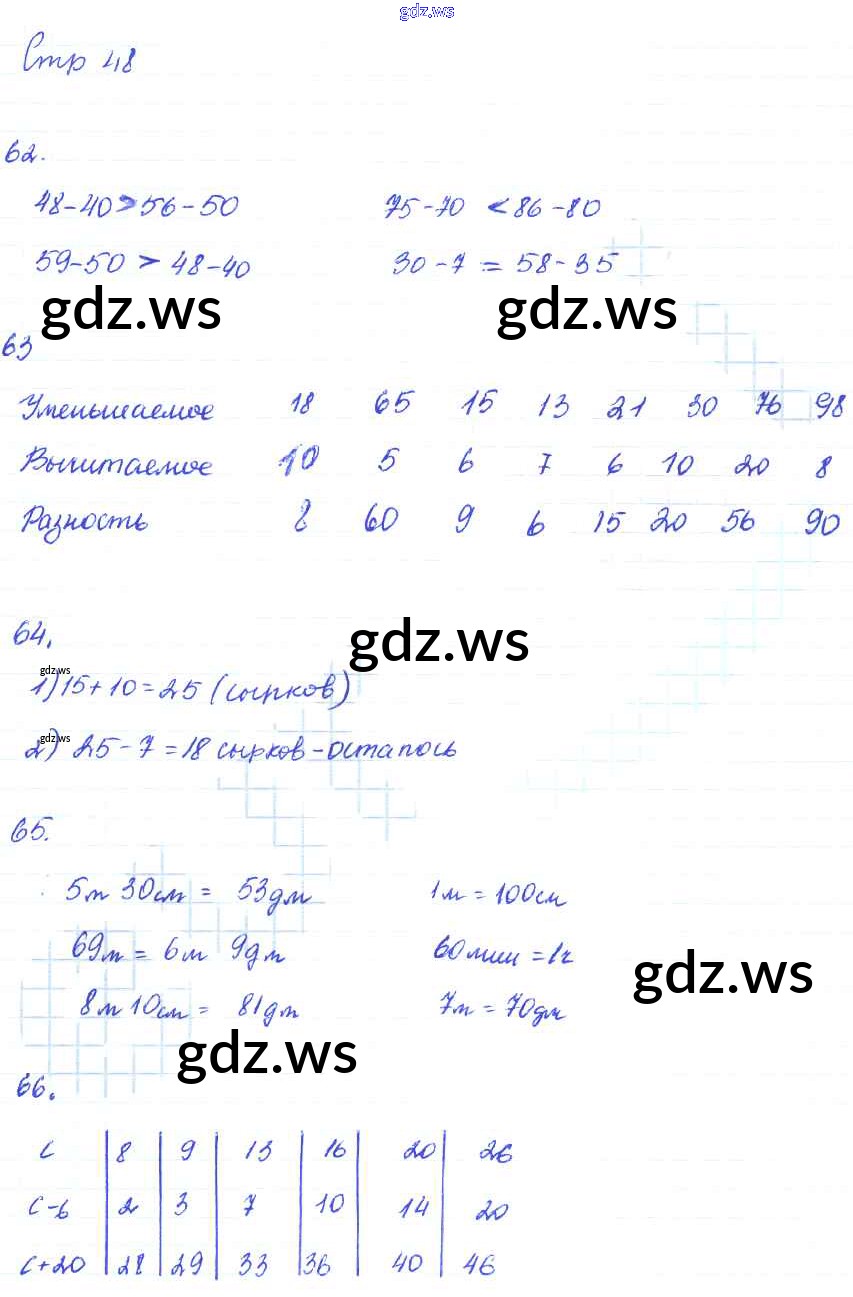 gdz.ws
Стр 48
62.
48-40>56-50 75-70 <86-80
59-50 > 48-40 30-7 = 58-35
gdz.ws gdz.ws
63
Уменьшаемое 18 65 15 13 21 30 76 98
Вычитаемое 10 5 6 7 6 10 20 8
Разность 8 60 9 6 15 20 56 90
64.
gdz.ws
gdz.ws
1) 15+10=25 (сырков)
gdz.ws
2) 25-7=18 сырков-осталось
65.
5м 30см = 53дм 1м = 100см
69м = 6м 9дм 60мин = 1г
gdz.ws
8м 10см = 81дм 7м = 70дм
gdz.ws
66.
с 8 9 13 16 20 26
с-6 2 3 7 10 14 20
с+20 28 29 33 36 40 46